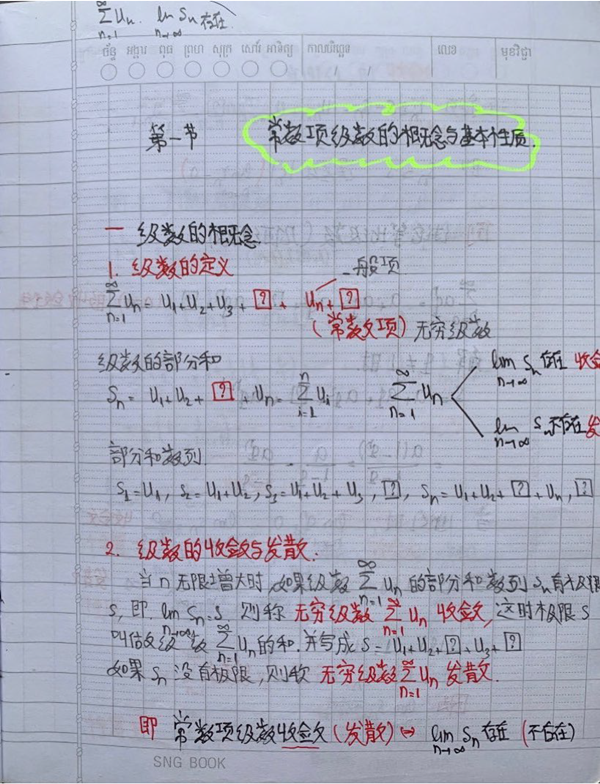 ∞∑n=1 Un. lim n→∞ Sn 存在
ច័ន្ទ អង្គារ ពុធ ព្រហ សុក្រ សៅរ៍ អាទិត្យ កាលបរិច្ឆេទ លេខ មុខវិជ្ជា
第一节 常数项级数的概念与基本性质.
一 级数的概念
1. 级数的定义 一般项
∞∑n=1 Un = U1+U2+U3+ [?] + Un+ [?]
(常数项) 无穷级数
级数的部分和
Sn = U1+U2+ [?] + Un = n∑i=1 Ui
∞∑n=1 Un lim n→∞ Sn 存在 收敛
lim n→∞ Sn 不存在 发
部分和数列
S1=U1, S2=U1+U2, S3=U1+U2+U3, [?], Sn=U1+U2+ [?] + Un, [?]
2. 级数的收敛与发散.
当 n 无限增大时, 如果级数 ∞∑n=1 Un 的部分和数列 Sn 有极限
S, 即 lim n→∞ Sn=S 则称 无穷级数 ∞∑n=1 Un 收敛, 这时极限 S
叫做级数 ∞∑n=1 Un 的和. 并写成 S = U1+U2+ [?] + U3+ [?]
如果 Sn 没有极限, 则称 无穷级数 ∞∑n=1 Un 发散.
即 常数项级数收敛(发散) ⇔ lim n→∞ Sn 存在 (不存在)
SNG BOOK